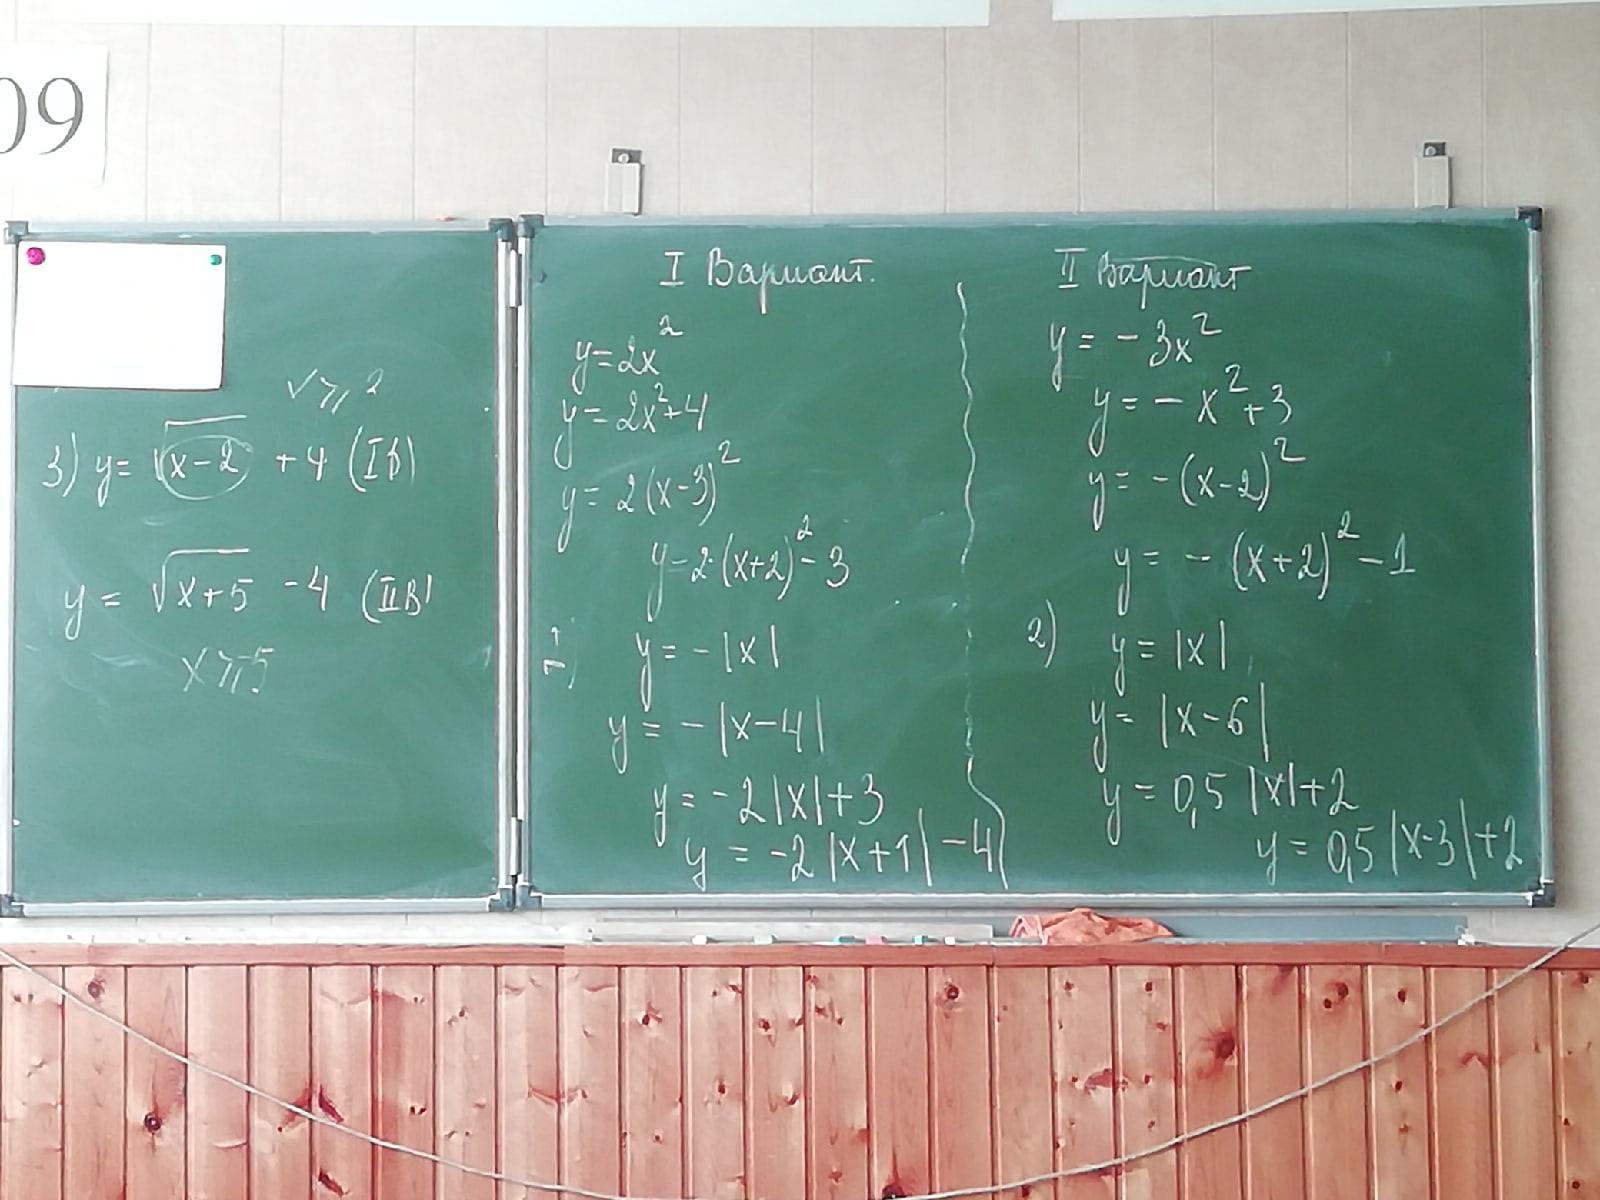 09
√ ⩾ 2
3) y = √(x-2) + 4 (I В)
y = √(x+5) - 4 (II В)
x ⩾ -5
I Вариант.
y = 2x²
y = 2x² + 4
y = 2(x-3)²
y = 2·(x+2)² - 3
y = -|x|
y = -|x-4|
y = -2|x| + 3
y = -2|x+1| - 4
II Вариант
y = -3x²
y = -x² + 3
y = -(x-2)²
y = -(x+2)² - 1
2) y = |x|
y = |x-6|
y = 0,5|x| + 2
y = 0,5|x-3| + 2